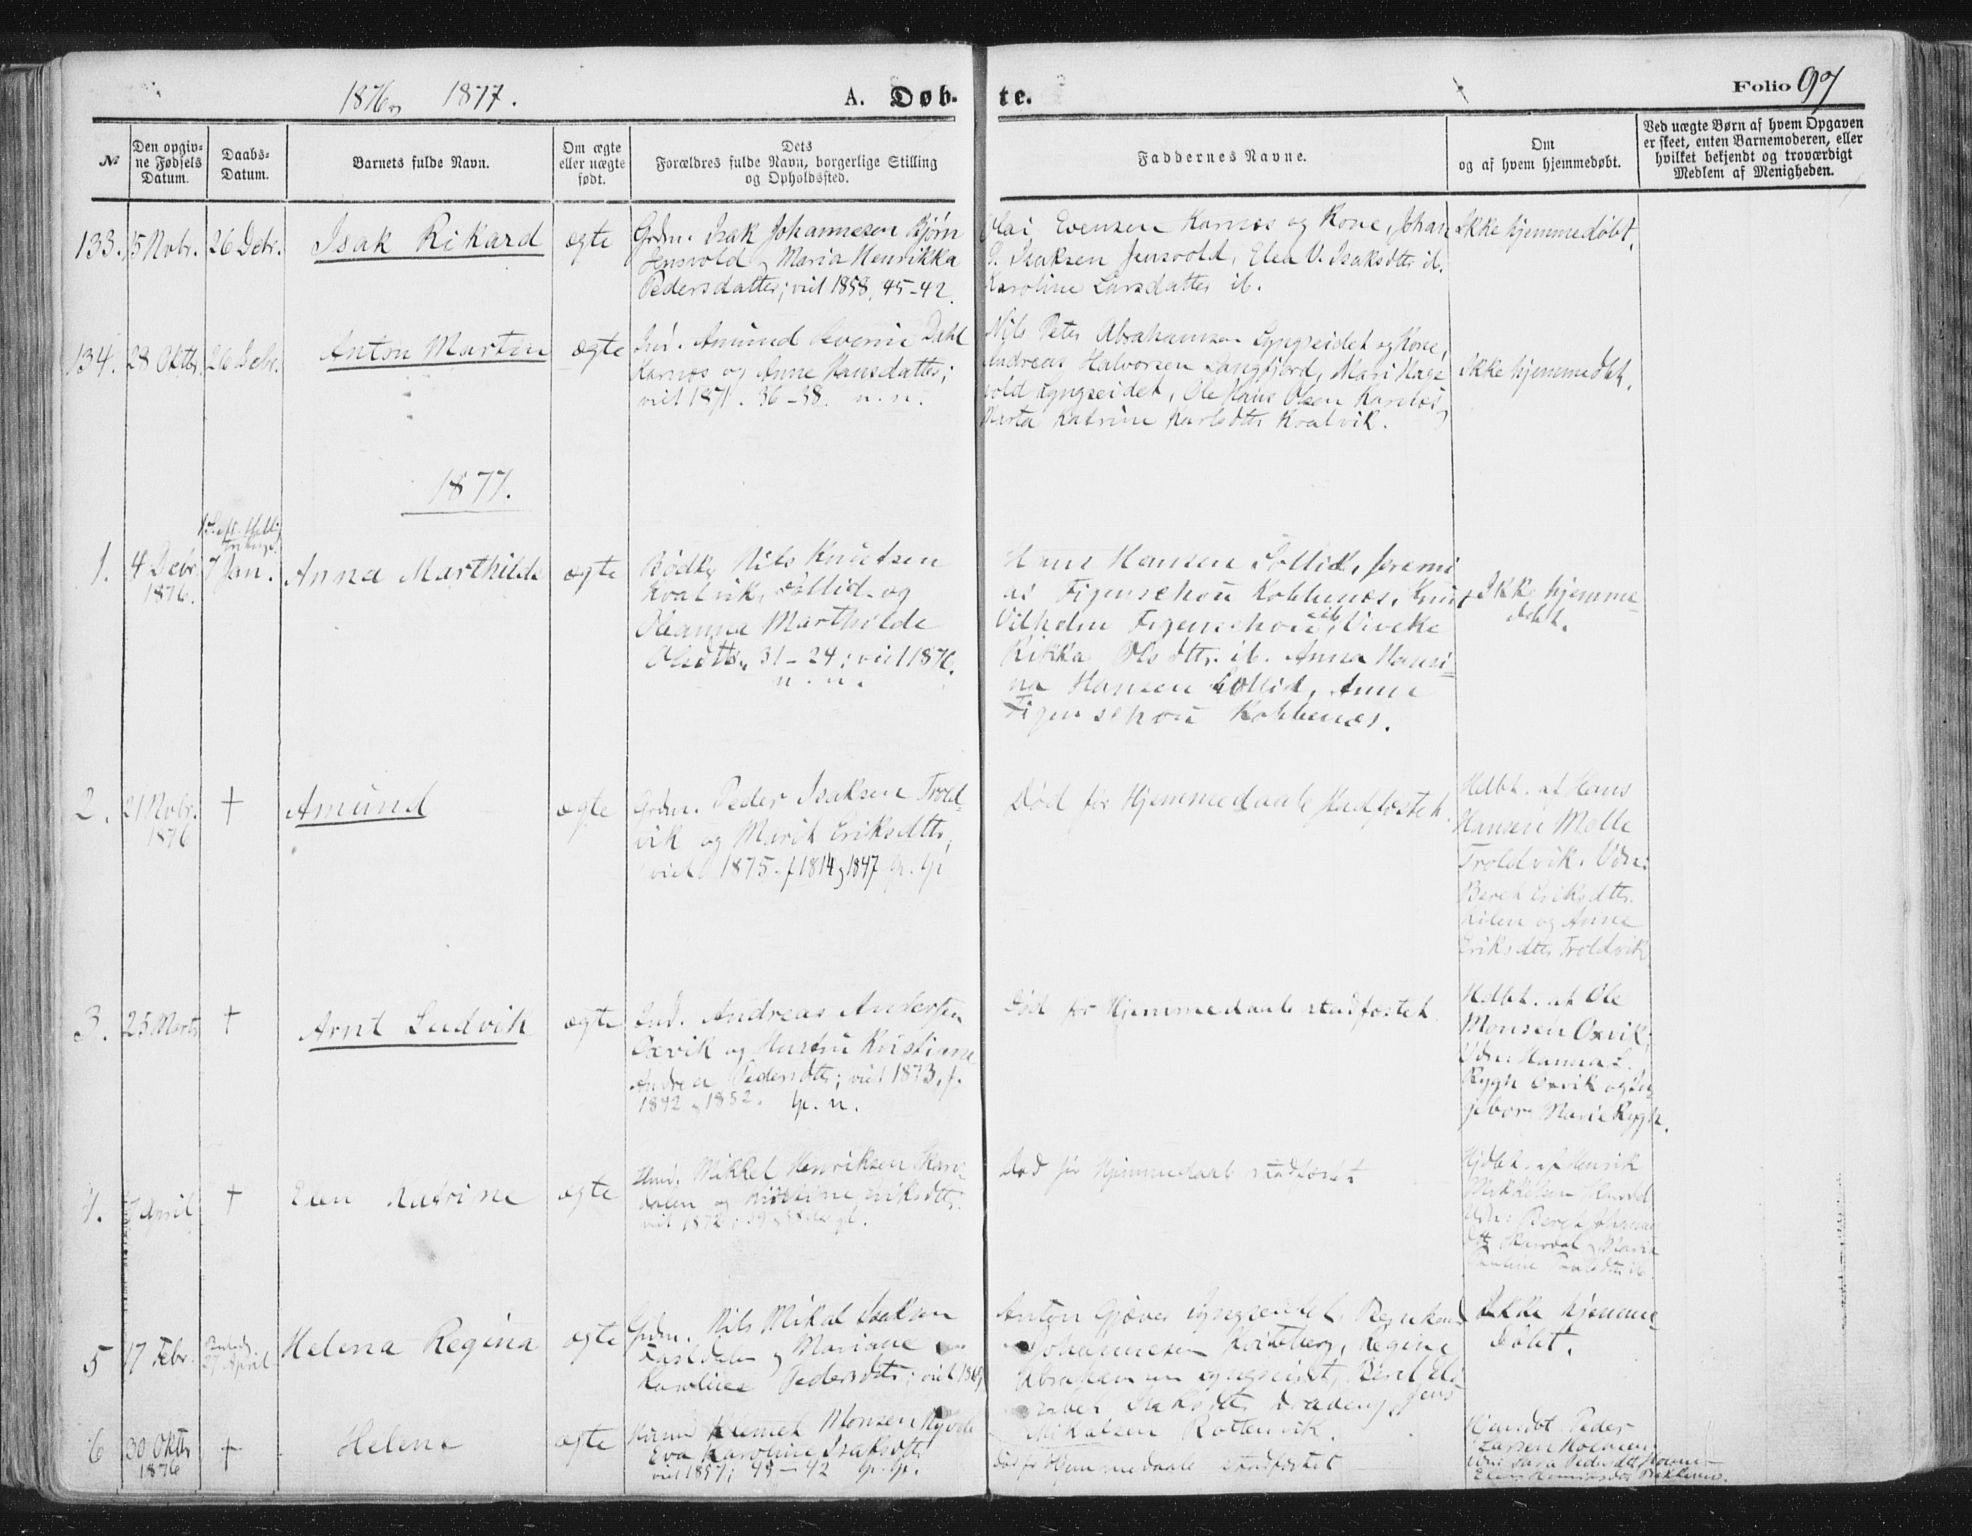 1876 og 1877.
A. Døbte.
Folio 97
№
Den opgivne Fødsels Datum.
Daabs-Datum.
Barnets fulde Navn.
Om ægte eller uægte født.
Dets Forældres fulde Navn, borgerlige Stilling og Opholdssted.
Faddernes Navne.
Om og af hvem hjemmedøbt.
Ved uægte Børn af hvem Opgaven er skeet, enten Barnemoderen, eller hvilket bekjendt og troværdigt Medlem af Menigheden.
133. 15 Novbr. 26 Debr. Isak Rikard ægte
Grdm. Isak Johannesen Bjørn
Jensvold og Maria Henrikka
Pedersdatter; viet 1858, 45-42.
Olai Evensen Karnæs og Kone, Johan
P. Isaksen Jensvold, Elen V. Isaksdtr ib.
Karoline Larsdatter ib.
Ikke hjemmedøbt.
134. 28 Oktbr. 26 Debr. Anton Martin ægte
Ind. Amund Severin Dahl
Karnæs og Anne Hansdatter;
viet 1871. 36-38. n. n.
Nils Peter Abrahamsen Lyngseidet og Kone,
Andreas Halvorsen Langfjord, Mari
Lyngseidet, Ole Hans Olsen Karnæs,
Marta Katrine Karlsdtr Kvalvik.
Ikke hjemmedøbt.
1877.
1. 4 Debr 1876. 7 Jan. Anna Marthilde ægte
Bødker Nils Knutsen
Kvalvik, Sollid og
Oleanna Marthilde
Olsdtr, 31-24; viet 1876.
n. n.
Hans Hansen Sollid, Jeremi
as Figenschou Kobbenæs, Knut
Vilhelm Figenschou ib, Viveke
Rikka Olsdtr. ib. Anna Hansi
na Hansen Sollid, Anne
Figenschou Kobbenæs.
Ikke hjemme-
døbt.
2. 21 Novbr. 1876 † Amund ægte
Grdm. Peder Isaksen Trold-
vik og Marit Eriksdtr,
viet 1875. f 1814 og 1847
Død før Hjemmedaab stadfæstet.
Hdbt. af Hans
Hansen Molle
Troldvik. Vdn:
Beret Eriksdtr.
Kilen og Anne
Eriksdtr Troldvik
3. 25 Marts † Arnt Ludvik ægte
Ind. Andreas Andersen
Oxvik og Hustru Kristiane
Andrea Pedersdtr; viet 1873. f.
1842 og 1852.
Død før Hjemmedaab stadfæstet
Hdbt. af Ole
Monsen Oxvik.
Vdn: Hanna L.
Rygh Oxvik og In
gebor Marie Rygh.
4. 7 April † Elen Katrine ægte
Ind. Mikkel Henriksen Skar
dalen og Kirstine Eriksdtr
Død før Hjemmedaab stadfæstet
Hjdbt. af Henrik
Mikkelsen
Vdn: Beret
Skardal og Marie
5 17 Febr. 27 April Helena Regina ægte
Grdm. Nils Mikal Isaksen
og Mariane
Karoline Pedersdtr; viet
Anton Gjæver Lyngseidet,
Johannesen Kvitberg, Regine
Abrahamsen Lyngseidet,
Isaksdtr Jens
Mikalsen Rottenvik.
Ikke hjemme-
døbt.
6 30 Oktbr 1876 † Helene ægte
Klemet Monsen
Eva Karoline Isaksdtr
viet 1857; 49-42
død før Hjemmedaab stadfæstet
Hjemdbt Peder
Larsen